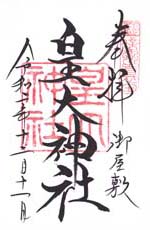 奉拝
御屋敷
皇大神社
令和二年十一月十一日